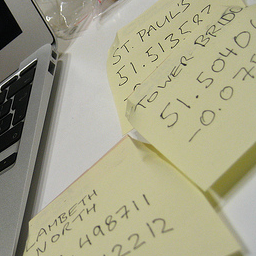 ST. PAUL'S
51.513587
TOWER BRIDG
51.5040
-0.07
LAMBETH
NORTH
498711
2212